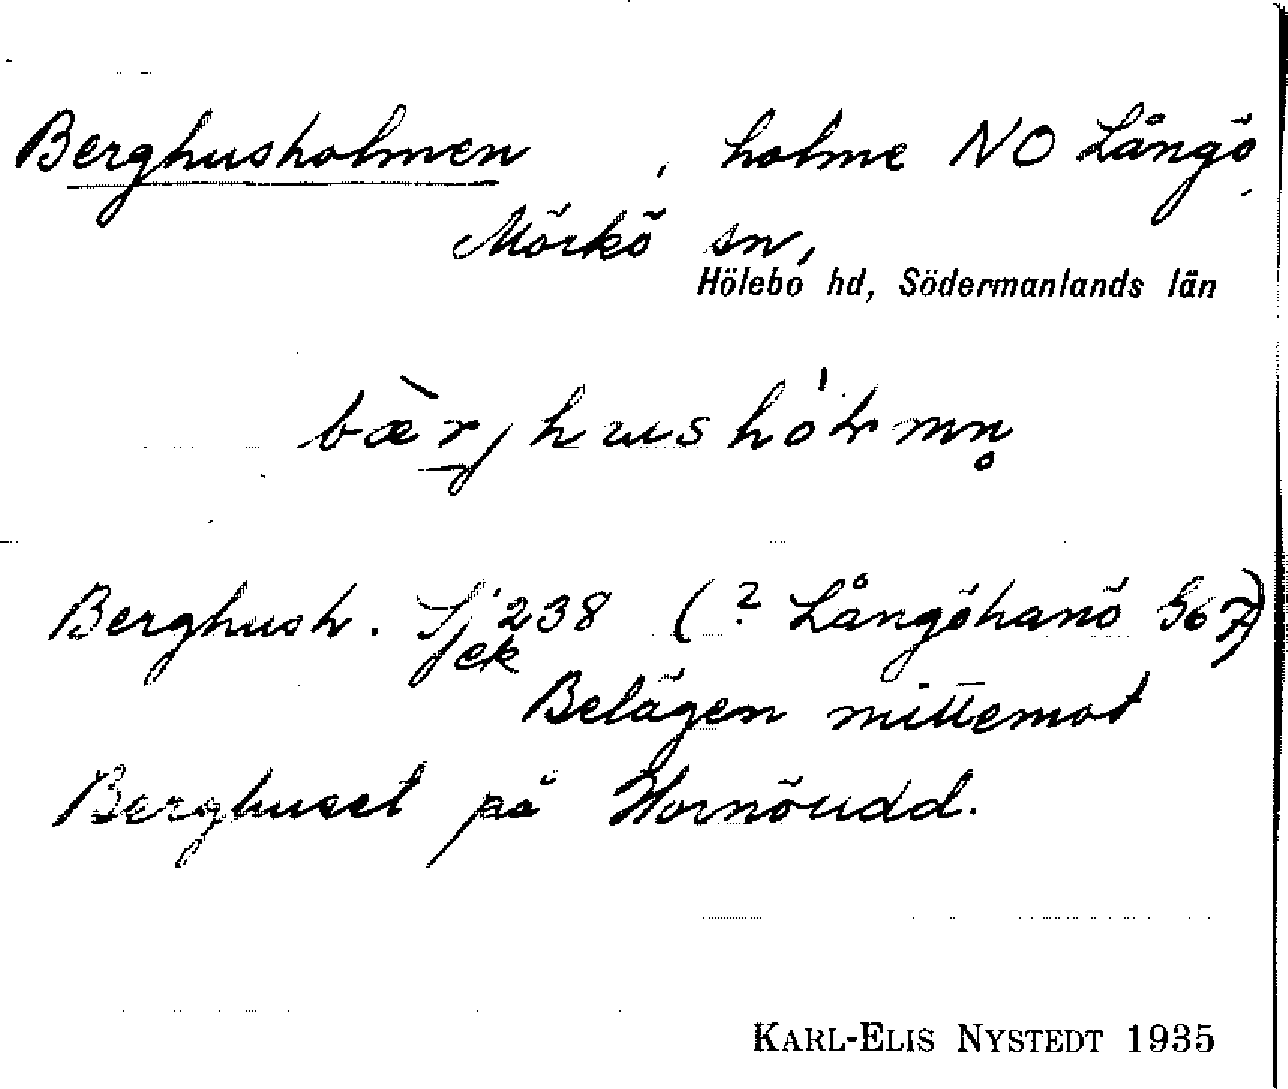 Berghusholmen , holme NO Långö,
Mörkö sn,
Hölebo hd, Södermanlands län
Berghush. Sjek 238 (? Långöhanö G67)
Belägen mittemot
Berghuset på Hornöudd.
KARL-ELIS NYSTEDT 1935